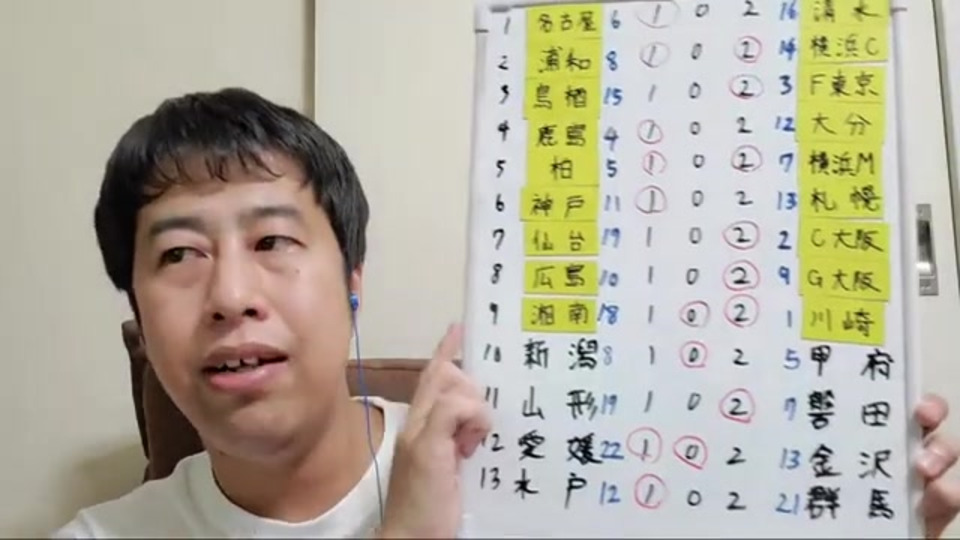 1 名古屋 6 1 0 2 16 清水
2 浦和 8 1 0 2 14 横浜C
3 鳥栖 15 1 0 2 3 F東京
4 鹿島 4 1 0 2 12 大分
5 柏 5 1 0 2 7 横浜M
6 神戸 11 1 0 2 13 札幌
7 仙台 19 1 0 2 2 C大阪
8 広島 10 1 0 2 9 G大阪
9 湘南 18 1 0 2 1 川崎
10 新潟 8 1 0 2 5 甲府
11 山形 19 1 0 2 7 磐田
12 愛媛 22 1 0 2 13 金沢
13 水戸 12 1 0 2 21 群馬